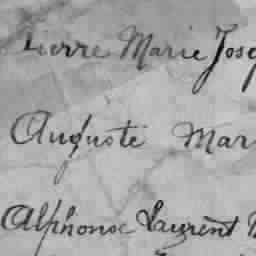 Pierre Marie Jose
Auguste Mar
Alphonse Laurent